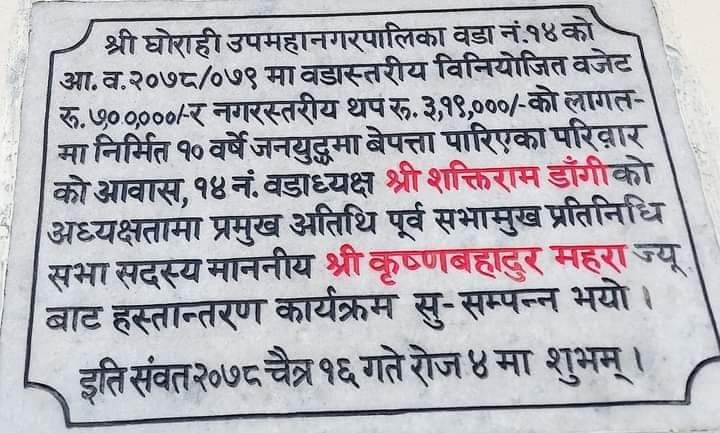 श्री घोराही उपमहानगरपालिका वडा नं.१४ को
आ.व.२०७८/०७९ मा वडास्तरीय विनियोजित वजेट
रू.७०००००/-र नगरस्तरीय थप रू. ३,१९,०००/-को लागत-
मा निर्मित १० वर्षे जनयुद्धमा बेपत्ता पारिएका परिवार
को आवास, १४ नं. वडाध्यक्ष श्री शक्तिराम डाँगी को
अध्यक्षतामा प्रमुख अतिथि पूर्व सभामुख प्रतिनिधि
सभा सदस्य माननीय श्री कृष्णबहादुर महरा ज्यू
बाट हस्तान्तरण कार्यक्रम सु-सम्पन्न भयो ।
इति संवत २०७८ चैत्र १६ गते रोज ४ मा शुभम् ।